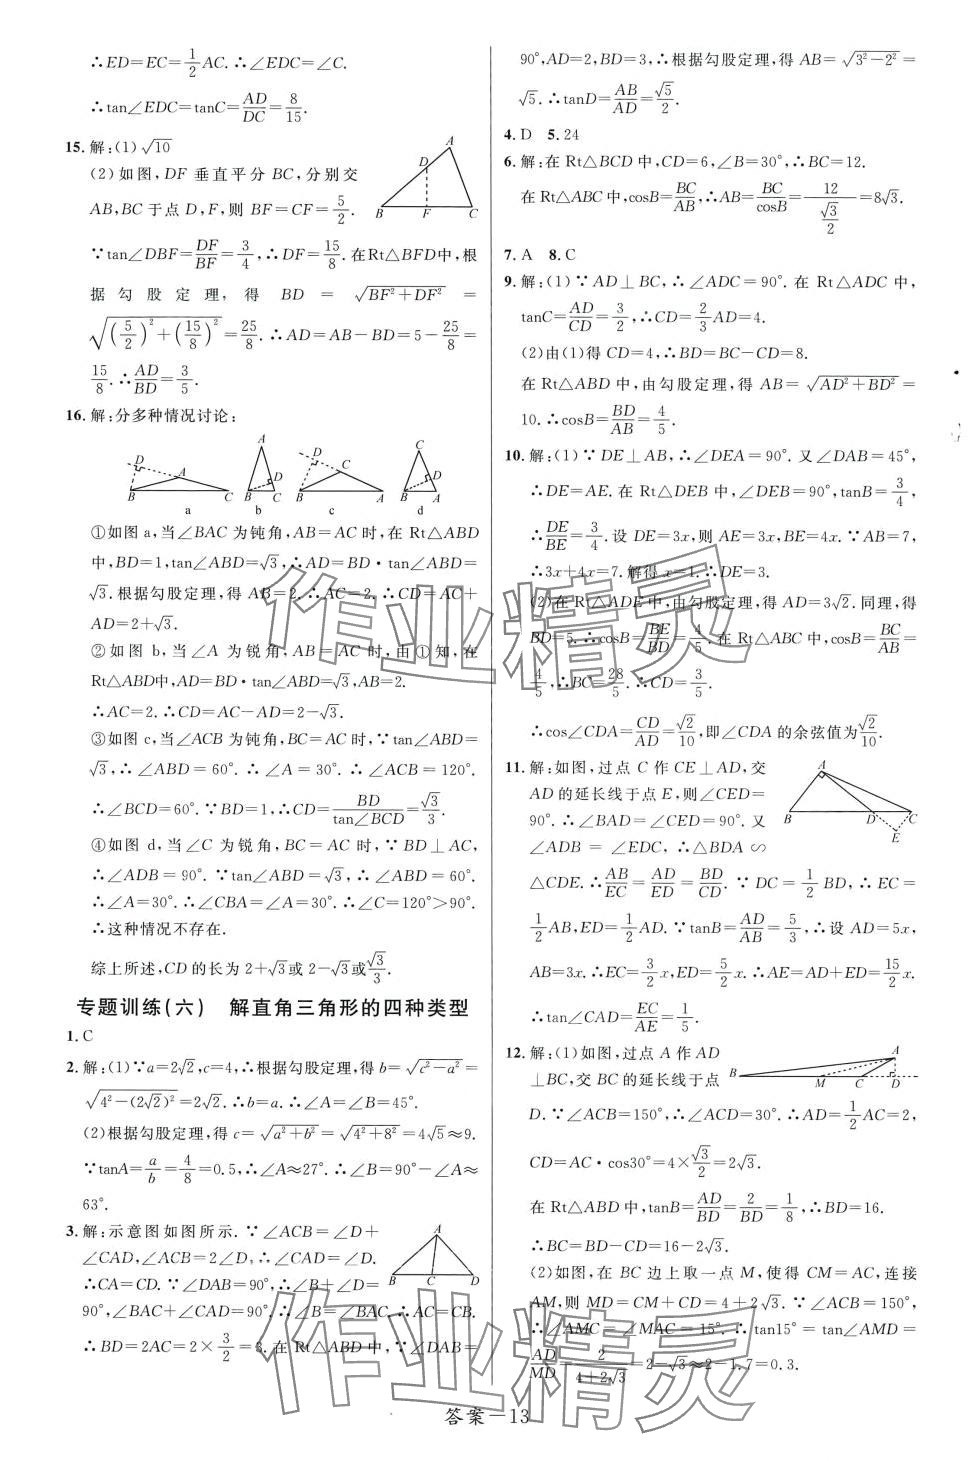 ∴ED=EC=1/2AC.∴∠EDC=∠C.
∴tan∠EDC=tanC=AD/DC=8/15.
15.解:(1)√10
(2)如图,DF 垂直平分 BC,分别交
AB,BC 于点 D,F,则 BF=CF=5/2.
∵tan∠DBF=DF/BF=3/4,∴DF=15/8.在Rt△BFD中,根
据勾股定理,得 BD = √(BF²+DF²) =
√((5/2)²+(15/8)²)=25/8.∴AD=AB-BD=5-25/8=
15/8.∴AD/BD=3/5.
A
D
B F C
16.解:分多种情况讨论:
D A B C a
A D B C b
D C B A c
C D B A d
①如图 a,当∠BAC 为钝角,AB=AC 时,在 Rt△ABD
中,BD=1,tan∠ABD=√3,∴AD=BD·tan∠ABD=
√3.根据勾股定理,得 AB=2.∴AC=2.∴CD=AC+
AD=2+√3.
②如图 b,当∠A 为锐角,AB=AC 时,由①知,在
Rt△ABD中,AD=BD·tan∠ABD=√3,AB=2.
∴AC=2.∴CD=AC-AD=2-√3.
③如图 c,当∠ACB 为钝角,BC=AC 时,∵tan∠ABD=
√3,∴∠ABD=60°.∴∠A=30°.∴∠ACB=120°.
∴∠BCD=60°.∵BD=1,∴CD=BD/tan∠BCD=√3/3.
④如图 d,当∠C 为锐角,BC=AC 时,∵BD⊥AC,
∴∠ADB=90°.∵tan∠ABD=√3,∴∠ABD=60°.
∴∠A=30°.∴∠CBA=∠A=30°.∴∠C=120°>90°.
∴这种情况不存在.
综上所述,CD 的长为 2+√3或 2-√3或√3/3.
专题训练(六) 解直角三角形的四种类型
1.C
2.解:(1)∵a=2√2,c=4,∴根据勾股定理,得 b=√(c²-a²)=
√(4²-(2√2)²)=2√2.∴b=a.∴∠A=∠B=45°.
(2)根据勾股定理,得 c=√(a²+b²)=√(4²+8²)=4√5≈9.
∵tanA=a/b=4/8=0.5,∴∠A≈27°.∴∠B=90°-∠A≈
63°.
3.解:示意图如图所示.∵∠ACB=∠D+
∠CAD,∠ACB=2∠D,∴∠CAD=∠D.
∴CA=CD.∵∠DAB=90°,∴∠B+∠D=
90°,∠BAC+∠CAD=90°.∴∠B=∠BAC.∴AC=CB.
∴BD=2AC=2×3/2=3.在 Rt△ABD 中,∵∠DAB=
A
B C D
90°,AD=2,BD=3,∴根据勾股定理,得 AB=√(3²-2²)=
√5.∴tanD=AB/AD=√5/2.
4.D 5.24
6.解:在 Rt△BCD 中,CD=6,∠B=30°,∴BC=12.
在 Rt△ABC 中,cosB=BC/AB,∴AB=BC/cosB=12/(√3/2)=8√3.
7.A 8.C
9.解:(1)∵AD⊥BC,∴∠ADC=90°.在 Rt△ADC 中,
tanC=AD/CD=3/2,∴CD=2/3AD=4.
(2)由(1)得 CD=4,∴BD=BC-CD=8.
在 Rt△ABD 中,由勾股定理,得 AB=√(AD²+BD²)=
10.∴cosB=BD/AB=4/5.
10.解:(1)∵DE⊥AB,∴∠DEA=90°.又∠DAB=45°,
∴DE=AE.在 Rt△DEB 中,∠DEB=90°,tanB=3/4,
∴DE/BE=3/4.设 DE=3x,则 AE=3x,BE=4x.∵AB=7,
∴3x+4x=7.解得 x=1.∴DE=3.
(2)在 Rt△ADE 中,由勾股定理,得 AD=3√2.同理,得
BD=5.∴cosB=BE/BD=4/5.在 Rt△ABC 中,cosB=BC/AB=
4/5,∴BC=28/5.∴CD=3/5.
∴cos∠CDA=CD/AD=√2/10,即∠CDA 的余弦值为√2/10.
11.解:如图,过点 C 作 CE⊥AD,交
AD 的延长线于点 E,则∠CED=
90°.∴∠BAD=∠CED=90°.又
∠ADB=∠EDC,∴△BDA∽
△CDE.∴AB/EC=AD/ED=BD/CD.∵DC=1/2BD,∴EC=
1/2AB,ED=1/2AD.∵tanB=AD/AB=5/3,∴设 AD=5x,
AB=3x.∴EC=3/2x,ED=5/2x.∴AE=AD+ED=15/2x.
∴tan∠CAD=EC/AE=1/5.
A
B D C
E
12.解:(1)如图,过点 A 作 AD
⊥BC,交 BC 的延长线于点
D.∵∠ACB=150°,∴∠ACD=30°.∴AD=1/2AC=2,
CD=AC·cos30°=4×√3/2=2√3.
在 Rt△ABD 中,tanB=AD/BD=2/BD=1/8,∴BD=16.
∴BC=BD-CD=16-2√3.
(2)如图,在 BC 边上取一点 M,使得 CM=AC,连接
AM,则 MD=CM+CD=4+2√3.∵∠ACB=150°,
∴∠AMC=∠MAC=15°.∴tan15°=tan∠AMD=
AD/MD=2/(4+2√3)=2-√3≈2-1.7=0.3.
A
B M C D
作业精灵
作业精灵
答案-13